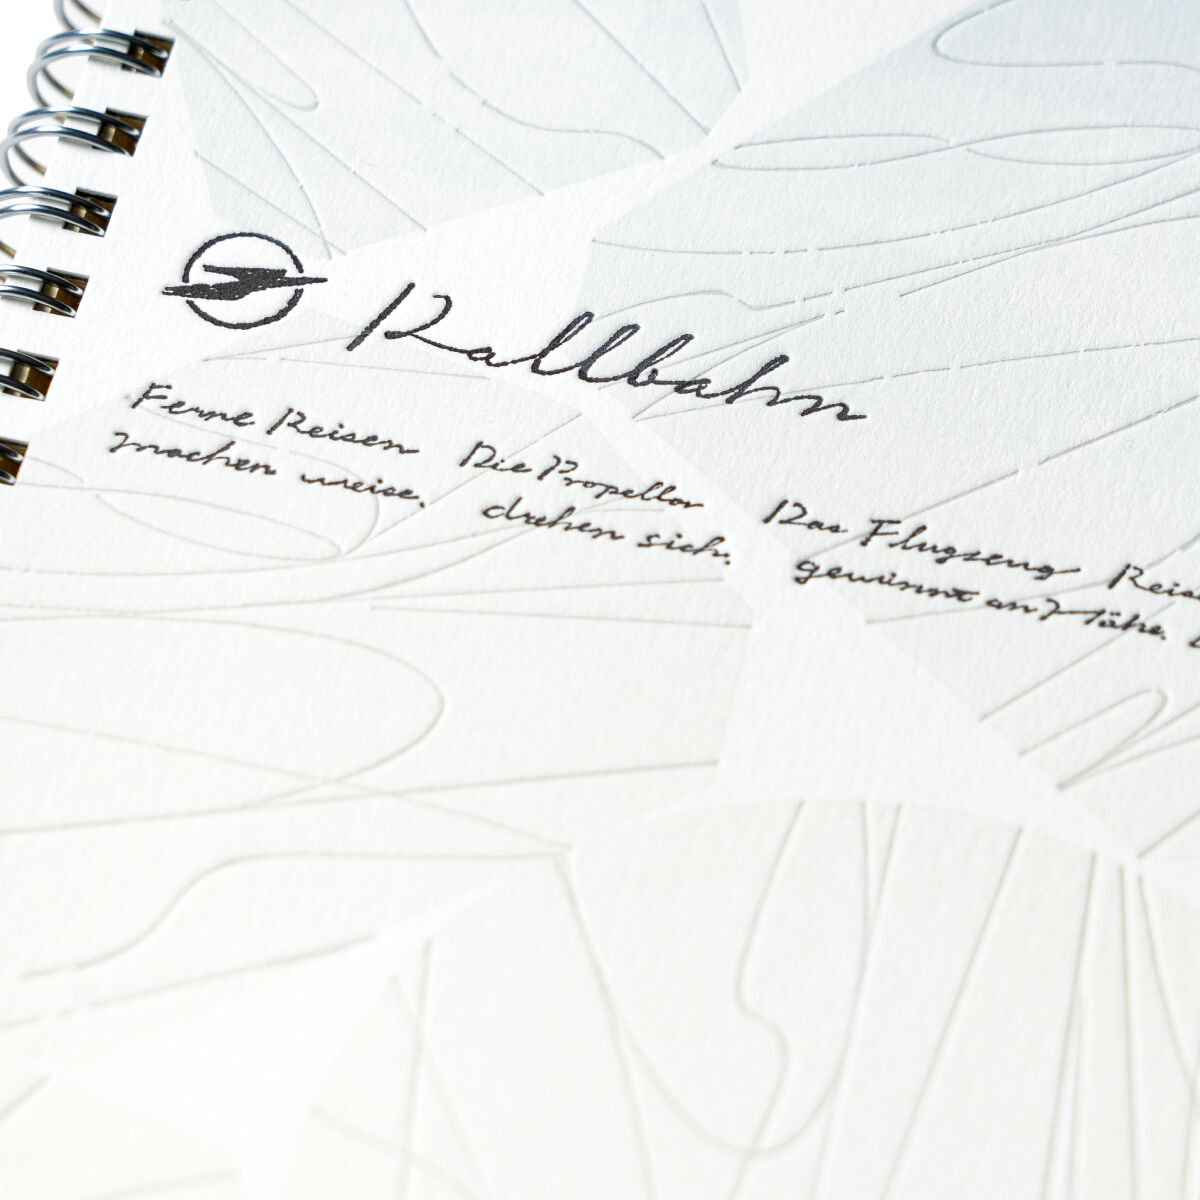 Rollbahn
Ferne Reisen
machen weise.
Die Propeller
drehen sich.
Das Flugzeug
gewinnt an Höhe.